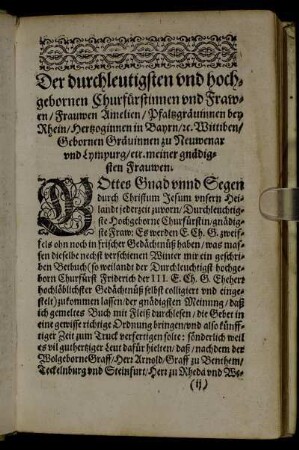 Der durchleutigsten vnd hoch-
gebornen Churfürstinnen vnd Fraw-
en/ Frauwen Amelien/ Pfaltzgräuinnen bey
Rhein/ Hertzoginnen in Bayrn/ ꝛc. Wittiben/
Gebornen Gräuinnen zu Neuwenar
vnd Lympurg/ etc. meiner gnädig-
sten Frauwen.
GOttes Gnad vnnd Segen
durch Christum Jesum vnsern Hei-
land jederzeit zuvorn/ Durchleuchtig-
ste Hochgeborne Churfürstin/ gnädig-
ste Fraw: Es werden E. Ch. G. zweif-
fels ohn noch in frischer Gedächtnüß haben/ was mas-
sen dieselbe nechst verschienen Winter mir ein geschri-
ben Betbuch (so weilandt der Durchleuchtigst hochge-
born Churfürst Friderich der III. E. Ch. G. Eheherr
hochlöblichster Gedächtnüß selbst colligiert vnd einge-
stelt) zukommen lassen/ der gnädigsten Meinung/ daß
ich gemeltes Buch mit Fleiß durchlesen/ die Gebet in
eine gewisse richtige Ordnung bringen/ vnd also künff-
tiger Zeit zum Truck verfertigen solte: sönderlich weil
es vil guthertziger Leut dafür hielten/ daß/ nachdem der
Wolgeborne Graff/ Herr Arnold/ Graff zu Benthem/
Tecklnburg vnd Steinfurt/ Herr zu Rheda vnd We-
(ij)